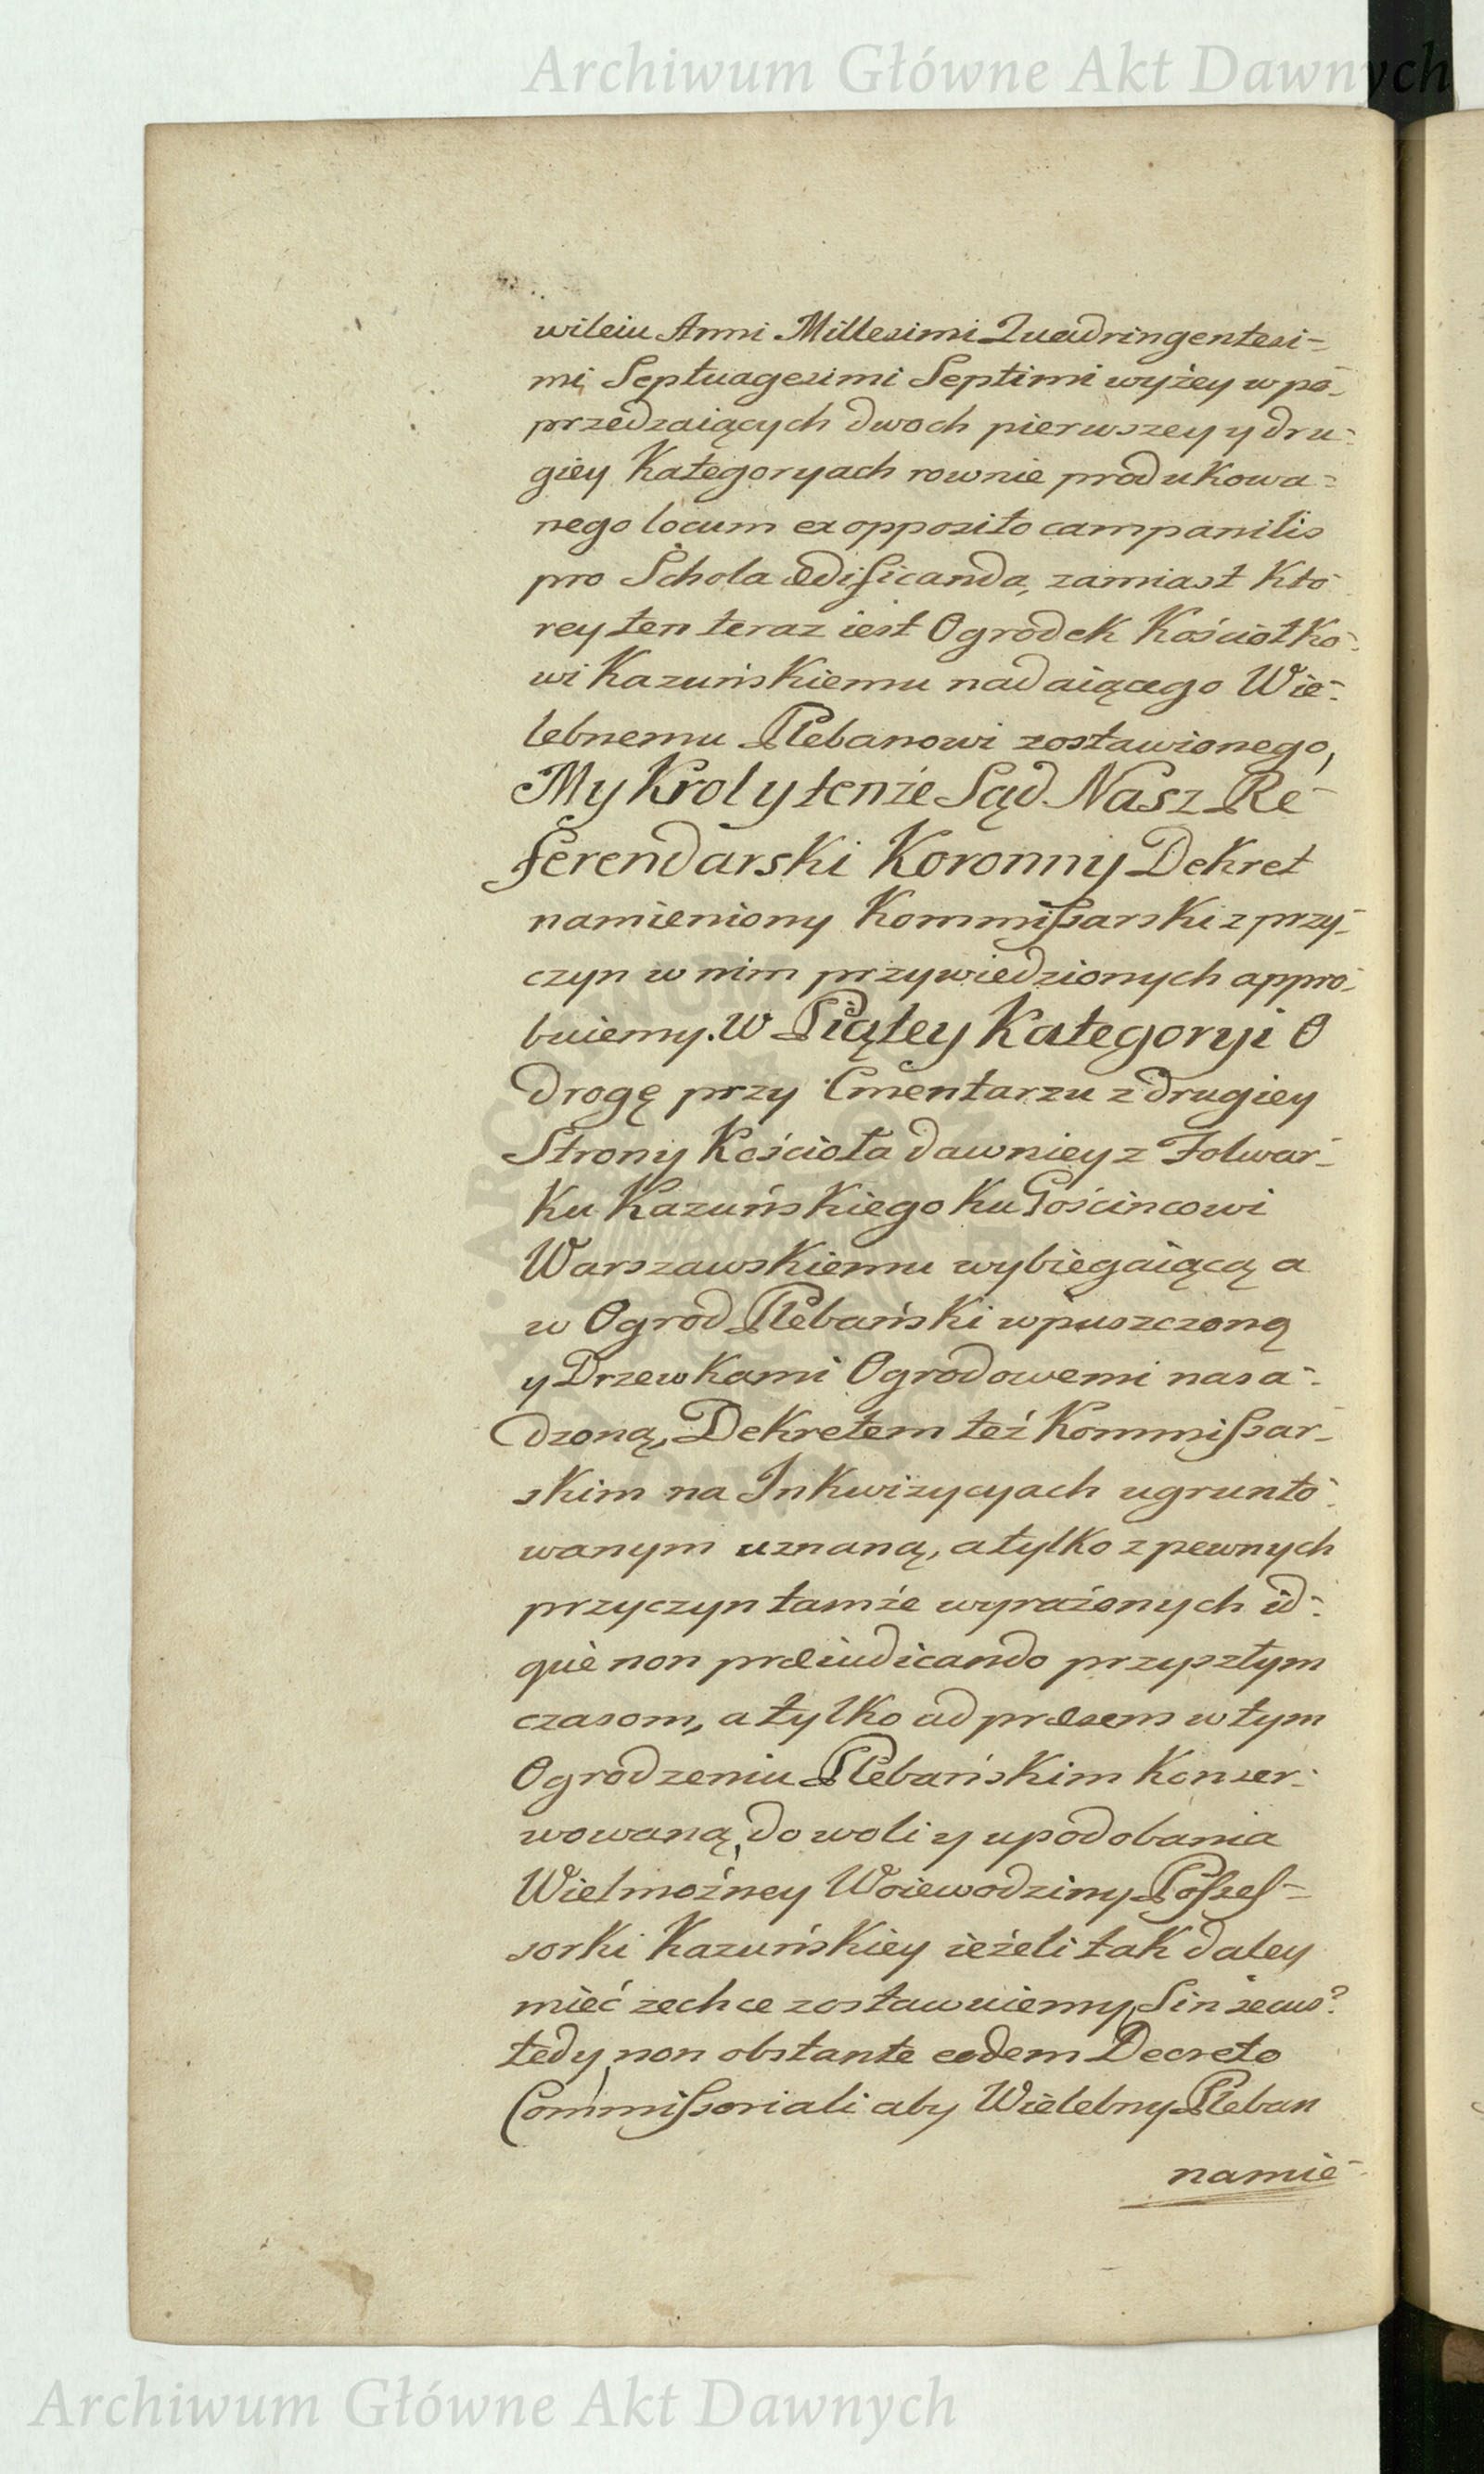 Archiwum Główne Akt Dawnych
wileiu Anni Millesimi Quadringentesi-
mi Septuagesimi Septimi wyżey w po-
przedzaiących dwoch pierwszey y dru-
giey Kategoryach rownie produkowa-
nego locum ex opposito campanilis
pro Schola ædificanda, zamiast Kto
rey ten teraz iest Ogrodek Kościołko-
wi Kazuńskiemu nadaiącego Wie-
lebnemu Plebanowi zostawionego,
My Krol y tenże Sąd Nasz Re-
ferendarski Koronny Dekret
namieniony Kommissarski z przy-
czyn w nim przywiedzionych appro-
buiemy. W Piątey Kategoryi O
drogę przy Cmentarzu z drugiey
Strony Kościoła dawniey z Folwar-
ku Kazuńskiego ku Gościncowi
Warszawskiemu wybiegaiącą a
w Ogrod Plebański wpuszczoną
y Drzewkami Ogrodowemi nasa-
dzoną, Dekretem też Kommissar-
skim na Inkwizycyach ugrunto-
wanym uznaną, a tylko z pewnych
przyczyn tamże wyrażonych id-
que non præiudicando przyszłym
czasom, a tylko ad præsens w tym
Ogrodzeniu Plebańskim Konser-
wowaną, do woli y upodobania
Wielmożney Woiewodziny Possess-
sorki Kazuńskiey ieżeli tak daley
mieć zechce zostawuiemy, Sin secus?
tedy non obstante eodem Decreto
Commissoriali aby Wielebny Pleban
namie-
Archiwum Główne Akt Dawnych